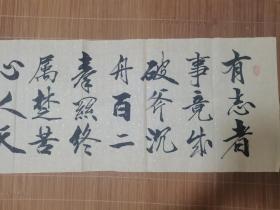 有志者
事竟成
破斧沉
舟百二
秦關终
属楚苦
心人天